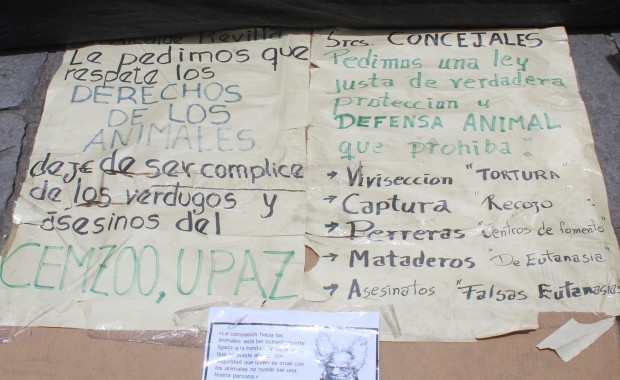 Alcalde Revilla
Le pedimos que
respete los
DERECHOS
DE LOS
ANIMALES
deje de ser complice
de los verdugos y
asesinos del
CEMZOO, UPAZ
Sres. CONCEJALES
Pedimos una ley
justa de verdadera
proteccion y
DEFENSA ANIMAL
que prohiba:
→ Viviseccion "TORTURA"
→ Captura "Recojo"
→ Perreras "Centros de fomento"
→ Mataderos "De Eutanasia"
→ Asesinatos "Falsas Eutanasias
«La compasión hacia los
animales está tan estrechamente
ligada a la bondad de carácter
que se puede afirmar con
seguridad que quien es cruel con
los animales no puede ser una
buena persona.»